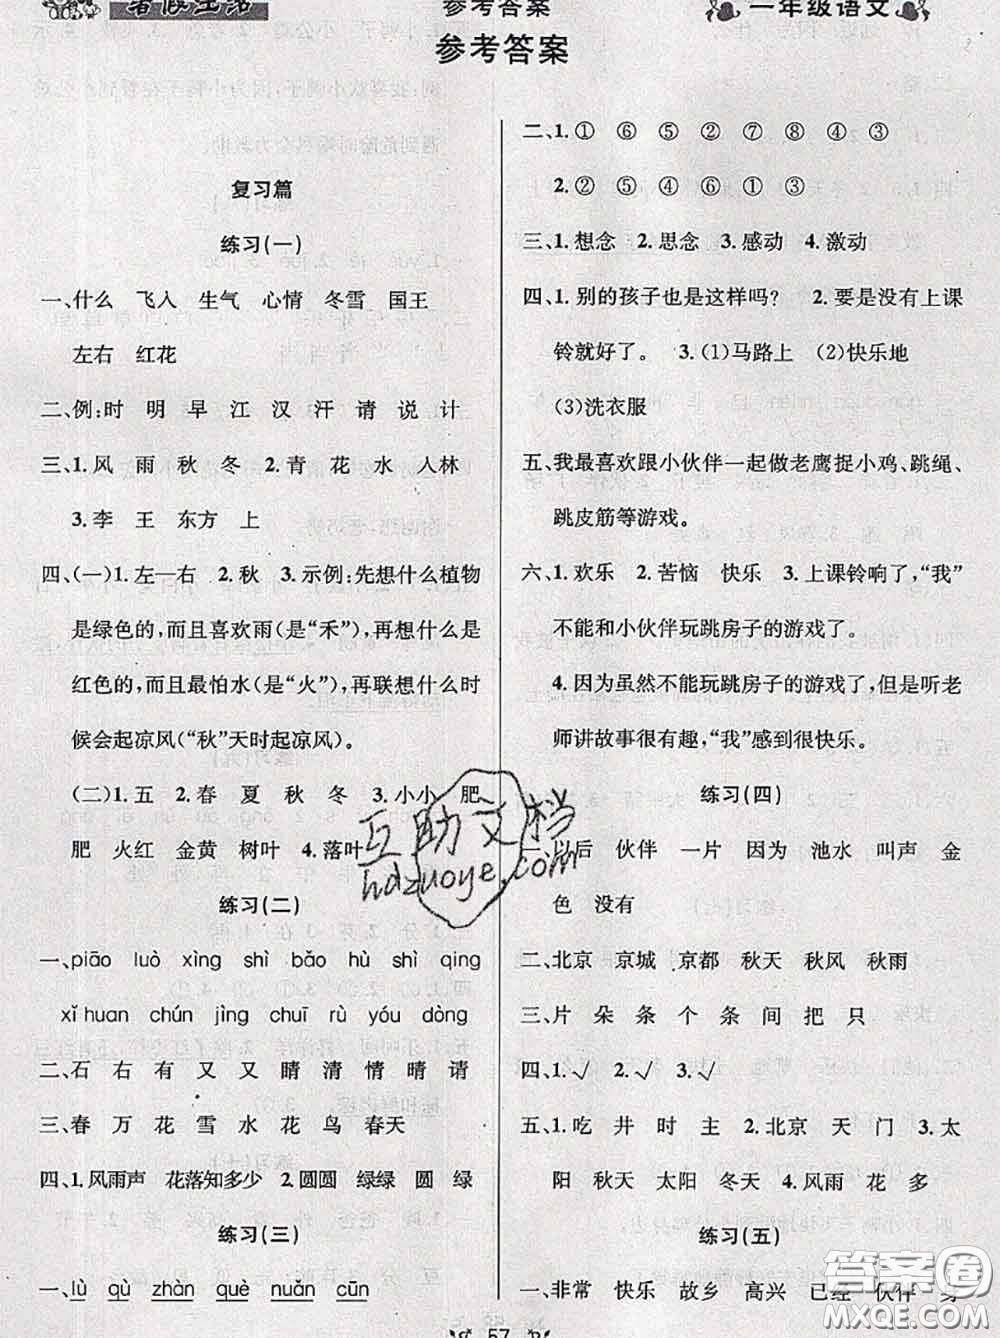 暑假生活
参考答案
一年级语文
参考答案
复习篇
练习(一)
一、什么 飞入 生气 心情 冬雪 国王
左右 红花
二、例:时 明 早 江 汉 汗 请 说 计
三、1.风 雨 秋 冬 2.青 花 水 人林
3.李 王 东方 上
四、(一)1.左—右 2.秋 3.示例:先想什么植物
是绿色的,而且喜欢雨(是“禾”),再想什么是
红色的,而且最怕水(是“火”),再联想什么时
候会起凉风(“秋”天时起凉风)。
(二)1.五 2.春 夏 秋 冬 3.小小 肥
肥 火红 金黄 树叶 4.落叶
练习(二)
一、piāo luò xìng shì bǎo hù shì qing
xǐ huan chún jìng chuī rù yóu dòng
二、石 右 有 又 又 睛 清 情 晴 请
三、春 万 花 雪 水 花 鸟 春天
四、1.风雨声 花落知多少 2.圆圆 绿绿 圆 绿
练习(三)
一、lù qù zhàn què nuǎn cūn
二、1.① ⑥ ⑤ ② ⑦ ⑧ ④ ③
2.② ⑤ ④ ⑥ ① ③
三、1.想念 2.思念 3.感动 4.激动
四、1.别的孩子也是这样吗? 2.要是没有上课
铃就好了。 3.(1)马路上 (2)快乐地
(3)洗衣服
五、我最喜欢跟小伙伴一起做老鹰捉小鸡、跳绳、
跳皮筋等游戏。
六、1.欢乐 2.苦恼 快乐 3.上课铃响了,“我”
不能和小伙伴玩跳房子的游戏了。
4.因为虽然不能玩跳房子的游戏了,但是听老
师讲故事很有趣,“我”感到很快乐。
练习(四)
以后 伙伴 一片 因为 池水 叫声 金
色 没有
二、北京 京城 京都 秋天 秋风 秋雨
三、片 朵 条 个 条 间 把 只
四、1.√ 2.√ 3.√
五、1.吃 井 时 主 2.北京 天 门 3.太
阳 秋天 太阳 冬天 4.风雨 花 多
练习(五)
一、非常 快乐 故乡 高兴 已经 伙伴 身
57
互助文档
hdzuoye.com
答案圈
MXQE.COM